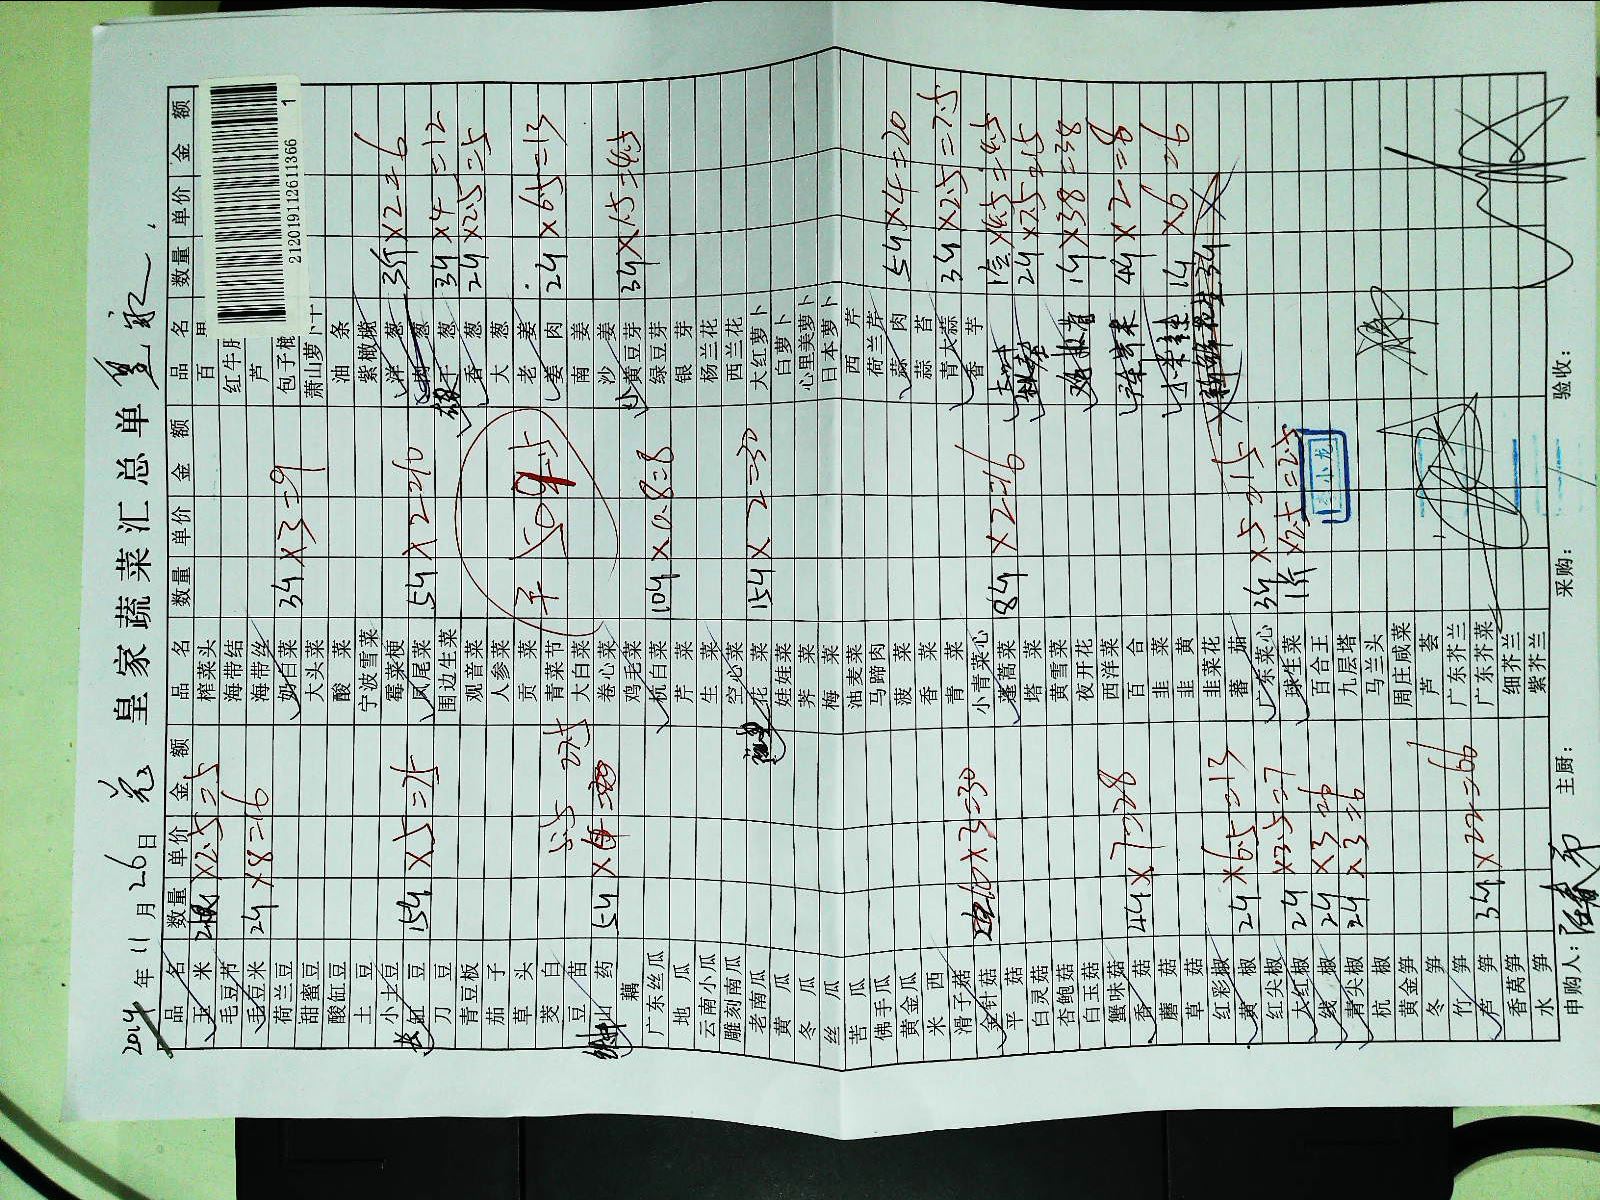 2019年11月26日
皇家蔬菜汇总单
212019112611366 1
品名 数量 单价 金额 品名 数量 单价 金额 品名 数量 单价 金额
玉米 ×2.5=5 榨菜头 百
毛豆节 海带结 红牛
毛豆米 24×8=16 海带丝 芦
荷兰豆 奶白菜 34×3=9 包子
甜蜜豆 大头菜 萧山萝卜干
酸缸豆 酸菜 油条
土豆 宁波雪菜 紫橄榄
小土豆 霉菜梗 洋葱 3斤×2=6
豇豆 154×5=75 凤尾菜 54×2=10 葱 34×4=12
刀豆 围边生菜 葱 24×2.5=5
青豆板 观音菜 香葱
茄子 人参菜 大葱
草头 贡菜 509.5 老姜 24×6.5=13
茭白 青菜节 姜肉
豆苗 5.5 27.5 大白菜 南姜
山药 54× 卷心菜 沙姜
藕 鸡毛菜 黄豆芽 34×1.5=4.5
广东丝瓜 杭白菜 104×0.8=8 绿豆芽
地瓜 芹菜 银芽
云南小瓜 生菜 杨兰花
雕刻南瓜 空心菜 西兰花
老南瓜 花菜 154×2=30 大红萝卜
黄瓜 娃娃菜 白萝卜
冬瓜 荠菜 心里美萝卜
丝瓜 梅菜 日本萝卜
苦瓜 油麦菜 西芹
佛手瓜 马蹄肉 荷兰芹
黄金瓜 菠菜 蒜肉 54×4=20
米西 香菜 蒜苔
滑子菇 青菜 青大蒜 34×2.5=7.5
金针菇 10×3=30 小青菜心 香芋
平菇 蓬蒿菜 84×2=16 ×4.5=4.5
白灵菇 塔菜 24×7.5=15
杏鲍菇 黄雪菜
白玉菇 夜开花 14×38=38
蟹味菇 西洋菜
香菇 44×7=28 百合 44×2=8
蘑菇 韭菜
草菇 韭黄 14×6=6
红彩椒 韭菜花
黄椒 24×6.5=13 番茄
红尖椒 广东菜心 34×5=15
大红椒 24×3.5=7 球生菜 1斤×2.5=2.5
线椒 24×3=6 百合王
青尖椒 24×3=6 九层塔
杭椒 马兰头
黄金笋 周庄咸菜
冬笋 芦荟
竹笋 广东芥兰
芦笋 34×22=66 广东芥菜
香莴笋 细芥兰
水笋 紫芥兰
申购人： 主厨： 采购： 验收：